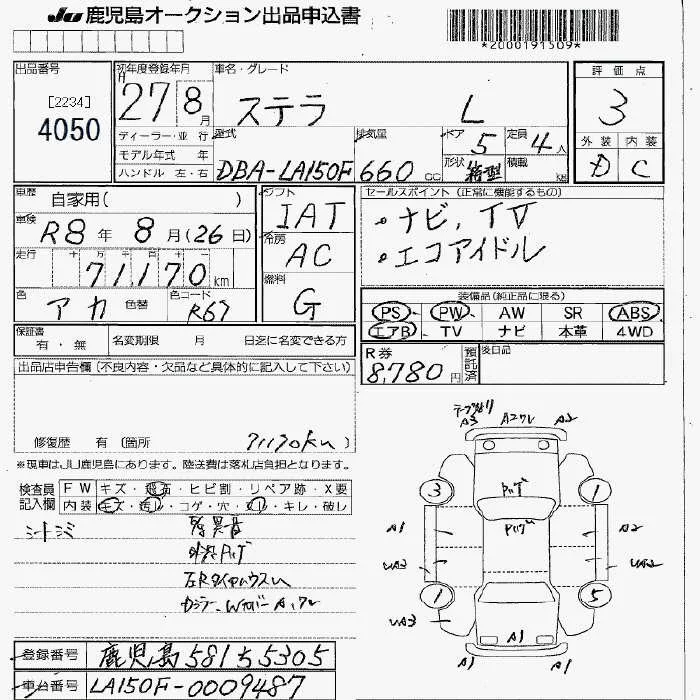 JU 鹿児島オークション出品申込書
*2000191509*
出品番号 [2234] 4050
初年度登録年月 H 27 8月
車名・グレード ステラ L
評価点 3
外装 D 内装 C
ディーラー・並行
モデル年式 年
ハンドル 左・右
型式 DBA-LA150F
排気量 660 cc
ドア 5 定員 4人
形状 箱型 積載 kg
車歴 自家用( )
車検 R8年 8月(26日)
走行 十 万 千 百 十 一 71,170km
色 アカ 色替 色コード R67
シフト IAT
冷房 AC
燃料 G
セールスポイント(正常に機能するもの)
・ナビ, TV
・エコアイドル
装備品(純正品に限る)
PS PW AW SR ABS
エアB TV ナビ 本革 4WD
保証書 有・無 名変期限 月 日迄に名変できる方
R券 8,780円 預託済 後日品
出品店申告欄(不良内容・欠品など具体的に記入して下さい)
修復歴 有(箇所 71170km )
※現車はJU鹿児島にあります。陸送費は落札店負担となります。
検査員記入欄 FW キズ・飛石・ヒビ割・リペア跡・X要
内装 キズ・汚れ・コゲ・穴・スレ・キレ・破レ
A3 A2 A2
3 1
A1 A2
UA3 UA2
1 5
UA3
A1
A1 A1
登録番号 鹿児島 581 ち 5305
車台番号 LA150F-0009487